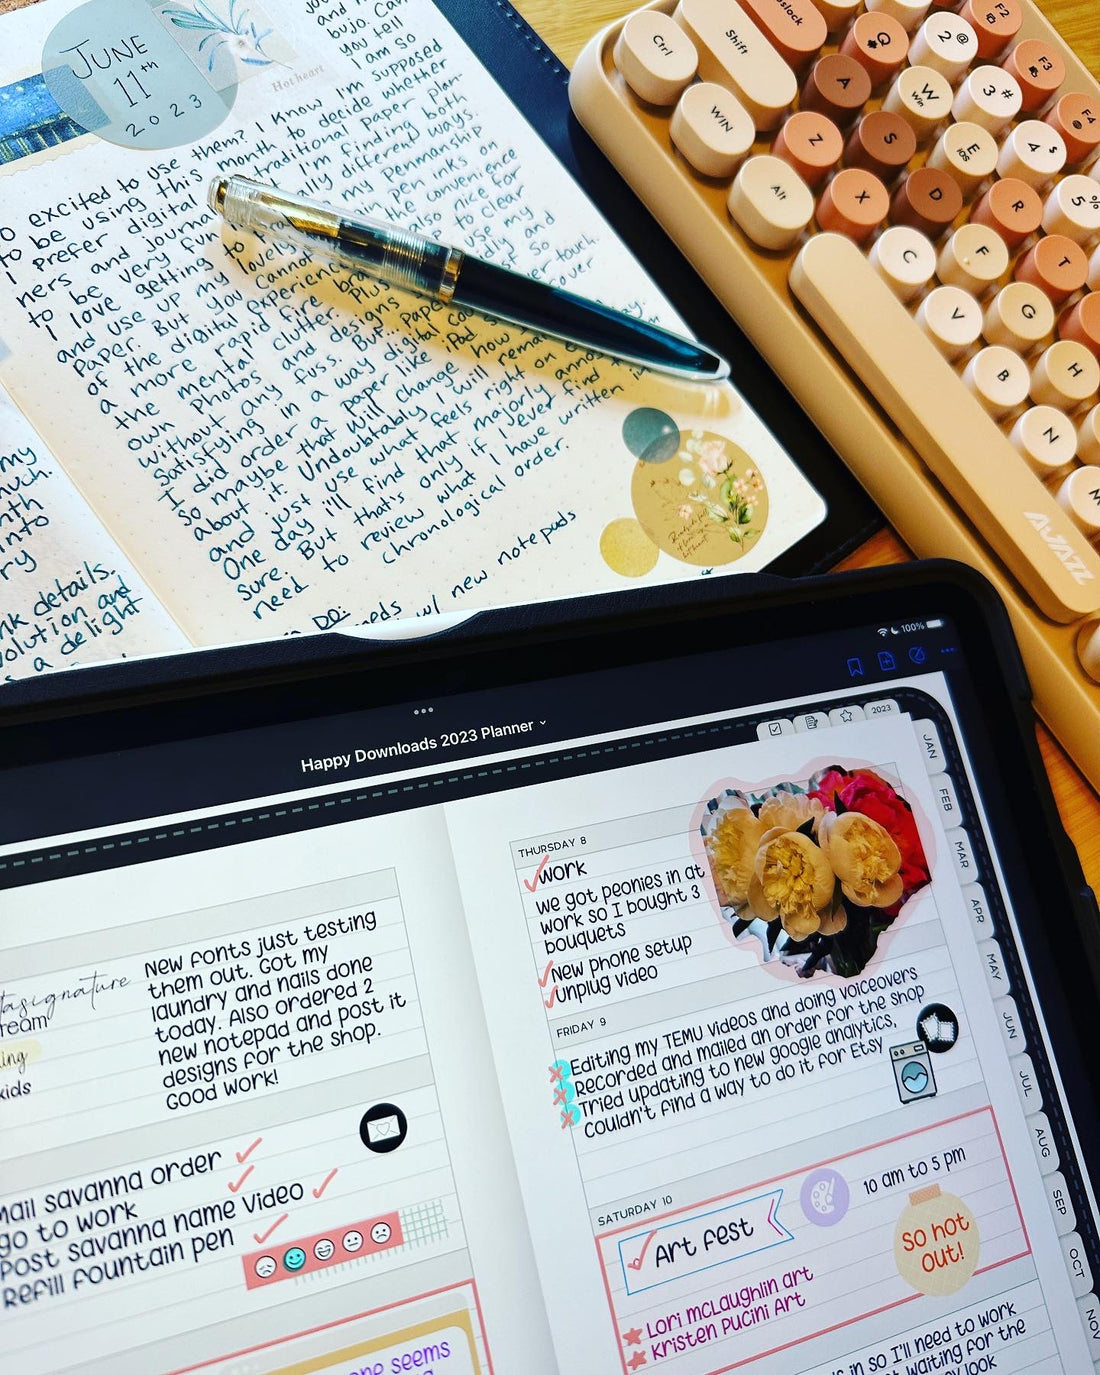 JUNE
11th
2023
Hot heart
and
bujo. Can
you tell
I am so
excited to use them? I know I'm supposed
to be using this month to decide whether
I prefer digital traditional paper plan-
ners and journal I'm finding both
to be very fun ally different ways.
I love getting to my penmanship
and use up my lovely in pen inks on
Paper. But you cannot the convenience
of the digital experience also nice for
a more rapid fire bra to clear
the mental clutter. Plus use my
own photos and designs
without any fuss. But paper so
satisfying in a way digital touch.
I did order a paper like iPad cover
so maybe that will change how
about it. Undoubtably I will remain
and just use what feels right on
One day i'll find that majorly
sure. But that's only if I ever find
need to review what I have written in
chronological order.
DO:
w/ new notepads
my
much.
nth
into
ry
nk details.
volution and
a delight
Ctrl
Shift
Capslock
WIN
Alt
Q
A
Z
2 @
W
Win
S
X
F2
3 #
E
iOS
D
C
F3
4 $
R
F
V
F4
5 %
T
G
B
H
N
M
AJAZZ
100%
Happy Downloads 2023 Planner
2023
JAN
FEB
MAR
APR
MAY
JUN
JUL
AUG
SEP
OCT
NOV
tasignature
ream
king
kids
New fonts just testing
them out. Got my
laundry and nails done
today. Also ordered 2
new notepad and post it
designs for the shop.
Good work!
Mail savanna order
go to work
Post savanna name video
Refill fountain pen
one seems
THURSDAY 8
work
we got peonies in at
work so I bought 3
bouquets
New phone setup
Unplug video
FRIDAY 9
Editing my TEMU videos and doing voiceovers
Recorded and mailed an order for the shop
Tried updating to new google analytics,
couldn't find a way to do it for Etsy
SATURDAY 10
Art fest
10 am to 5 pm
so hot
out!
Lori McLaughlin art
Kristen Pucini Art
in so I'll need to work
waiting for the
look